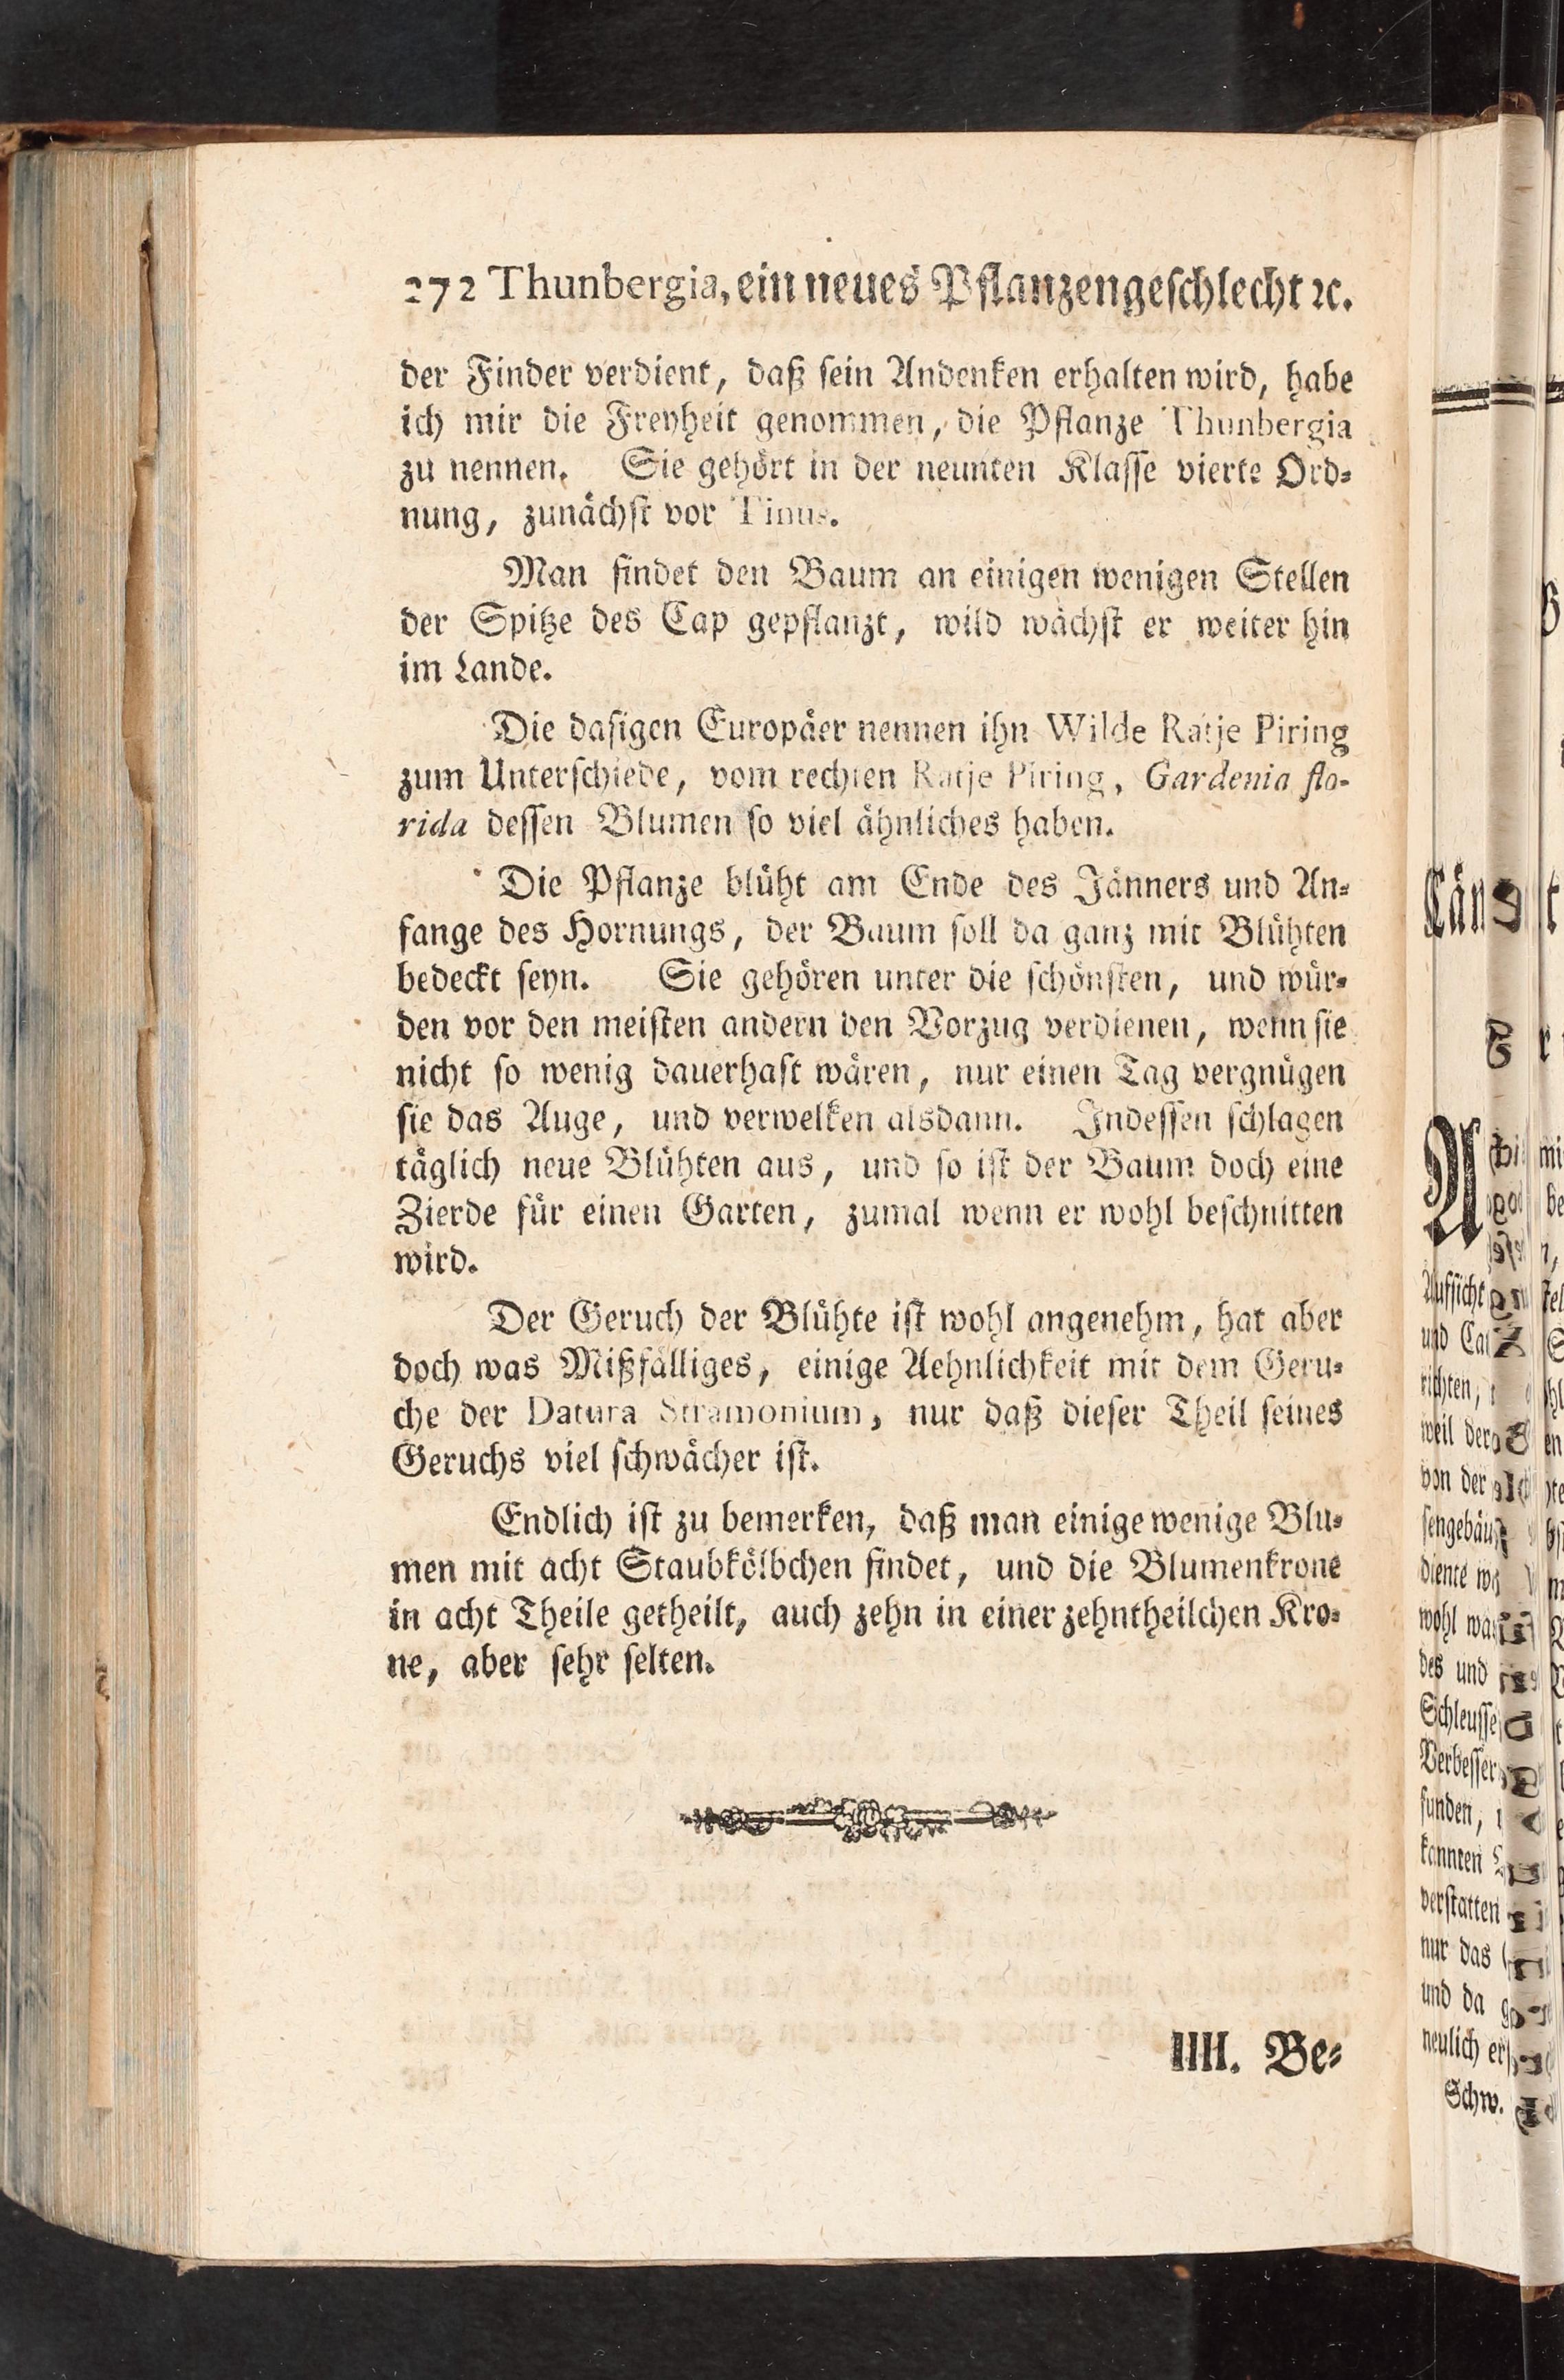 272 Thunbergia, ein neues Pflanzengeschlecht ꝛc.
der Finder verdient, daß sein Andenken erhalten wird, habe
ich mir die Freyheit genommen, die Pflanze Thunbergia
zu nennen. Sie gehört in der neunten Klasse vierte Ord-
nung, zunächst vor Tinus.
Man findet den Baum an einigen wenigen Stellen
der Spitze des Cap gepflanzt, wild wächst er weiter hin
im Lande.
Die dasigen Europäer nennen ihn Wilde Ratje Piring
zum Unterschiede, vom rechten Ratje Piring, Gardenia flo-
rida dessen Blumen so viel ähnliches haben.
Die Pflanze blüht am Ende des Jänners und An-
fange des Hornungs, der Baum soll da ganz mit Blühten
bedeckt seyn. Sie gehören unter die schönsten, und wür-
den vor den meisten andern den Vorzug verdienen, wenn sie
nicht so wenig dauerhaft wären, nur einen Tag vergnügen
sie das Auge, und verwelken alsdann. Indessen schlagen
täglich neue Blühten aus, und so ist der Baum doch eine
Zierde für einen Garten, zumal wenn er wohl beschnitten
wird.
Der Geruch der Blühte ist wohl angenehm, hat aber
doch was Mißfälliges, einige Aehnlichkeit mit dem Geru-
che der Datura Stramonium, nur daß dieser Theil seines
Geruchs viel schwächer ist.
Endlich ist zu bemerken, daß man einige wenige Blu-
men mit acht Staubkölbchen findet, und die Blumenkrone
in acht Theile getheilt, auch zehn in einer zehntheilchen Kro-
ne, aber sehr selten.
IIII. Be-
Aufsicht
und
richten,
weil der
von der
diente
wohl
des und
funden,
kannten
verstatten
nur das
und da
neulich
Schw.